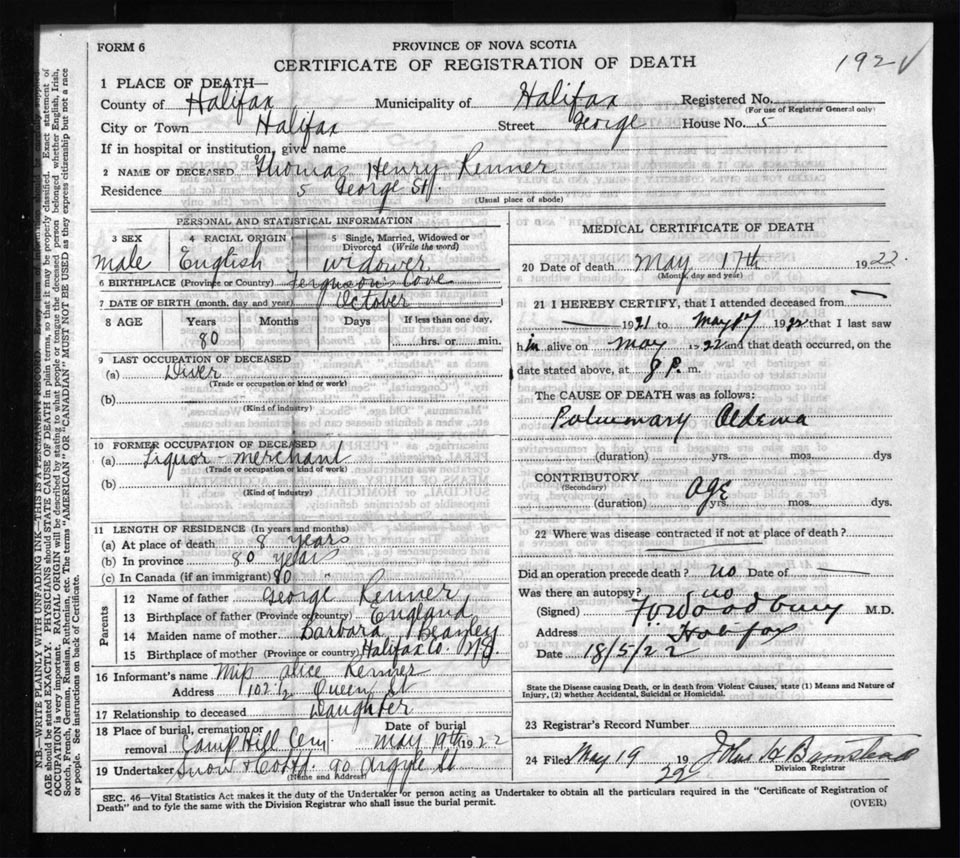 FORM 6
PROVINCE OF NOVA SCOTIA
CERTIFICATE OF REGISTRATION OF DEATH
192
1 PLACE OF DEATH—
County of Halifax Municipality of Halifax Registered No.
(For use of Registrar General only)
City or Town Halifax Street George House No. 5
If in hospital or institution, give name
2 NAME OF DECEASED Thomas Henry Renner
Residence 5 George St.
(Usual place of abode)
PERSONAL AND STATISTICAL INFORMATION
3 SEX 4 RACIAL ORIGIN 5 Single, Married, Widowed or Divorced (Write the word)
male English widower
6 BIRTHPLACE (Province or Country) Ferguson's Cove
7 DATE OF BIRTH (month, day and year) October
8 AGE Years Months Days If less than one day.
80 hrs. or min.
9 LAST OCCUPATION OF DECEASED
(a) Diver
(Trade or occupation or kind or work)
(b)
(Kind of industry)
10 FORMER OCCUPATION OF DECEASED
(a) Liquor-merchant
(Trade or occupation or kind or work)
(b)
(Kind of industry)
11 LENGTH OF RESIDENCE (In years and months)
(a) At place of death 8 years
(b) In province 80 years
(c) In Canada (if an immigrant) 80 "
Parents
12 Name of father George Renner
13 Birthplace of father (Province or country) England
14 Maiden name of mother Barbara Beamley
15 Birthplace of mother (Province or country) Halifax Co. N.S.
16 Informant's name Miss Alice Renner
Address 102 1/2 Queen St
17 Relationship to deceased Daughter
18 Place of burial, cremation or removal Camp Hill Cem Date of burial May 19th 1922
19 Undertaker Snow & Co Ltd. 90 Argyle St
(Name and Address)
MEDICAL CERTIFICATE OF DEATH
20 Date of death May 17th 1922.
(Month, day and year)
21 I HEREBY CERTIFY, that I attended deceased from
1921 to May 17 1922 that I last saw
him alive on May 1922 and that death occurred, on the
date stated above, at 8 P. m.
The CAUSE OF DEATH was as follows:
Pulmonary Oedema
(duration) yrs. mos. dys
CONTRIBUTORY Age
(Secondary)
(duration) yrs. mos. dys.
22 Where was disease contracted if not at place of death?
Did an operation precede death? no Date of
Was there an autopsy? no
(Signed) F V Woodbury M.D.
Address Halifax
Date 18/5/22
State the Disease causing Death, or in death from Violent Causes, state (1) Means and Nature of
Injury, (2) whether Accidental, Suicidal or Homicidal.
23 Registrar's Record Number
24 Filed May 19 1922 John A Barnstead
Division Registrar
SEC. 46—Vital Statistics Act makes it the duty of the Undertaker or person acting as Undertaker to obtain all the particulars required in the "Certificate of Registration of
Death" and to fyle the same with the Division Registrar who shall issue the burial permit.
(OVER)
N.B.—WRITE PLAINLY WITH UNFADING INK—THIS IS A PERMANENT RECORD.
AGE should be stated EXACTLY. PHYSICIANS should STATE CAUSE OF DEATH in plain terms, so that it may be properly classified. Exact statement of
OCCUPATION is very important. RACIAL ORIGIN will be described by stating to what people or tongue the deceased person belonged whether English, Irish,
Scotch, French, German, Russian, Ruthenian, etc. The terms "AMERICAN" OR "CANADIAN" MUST NOT BE USED as they express citizenship but not a race
or people. See instructions on back of Certificate.